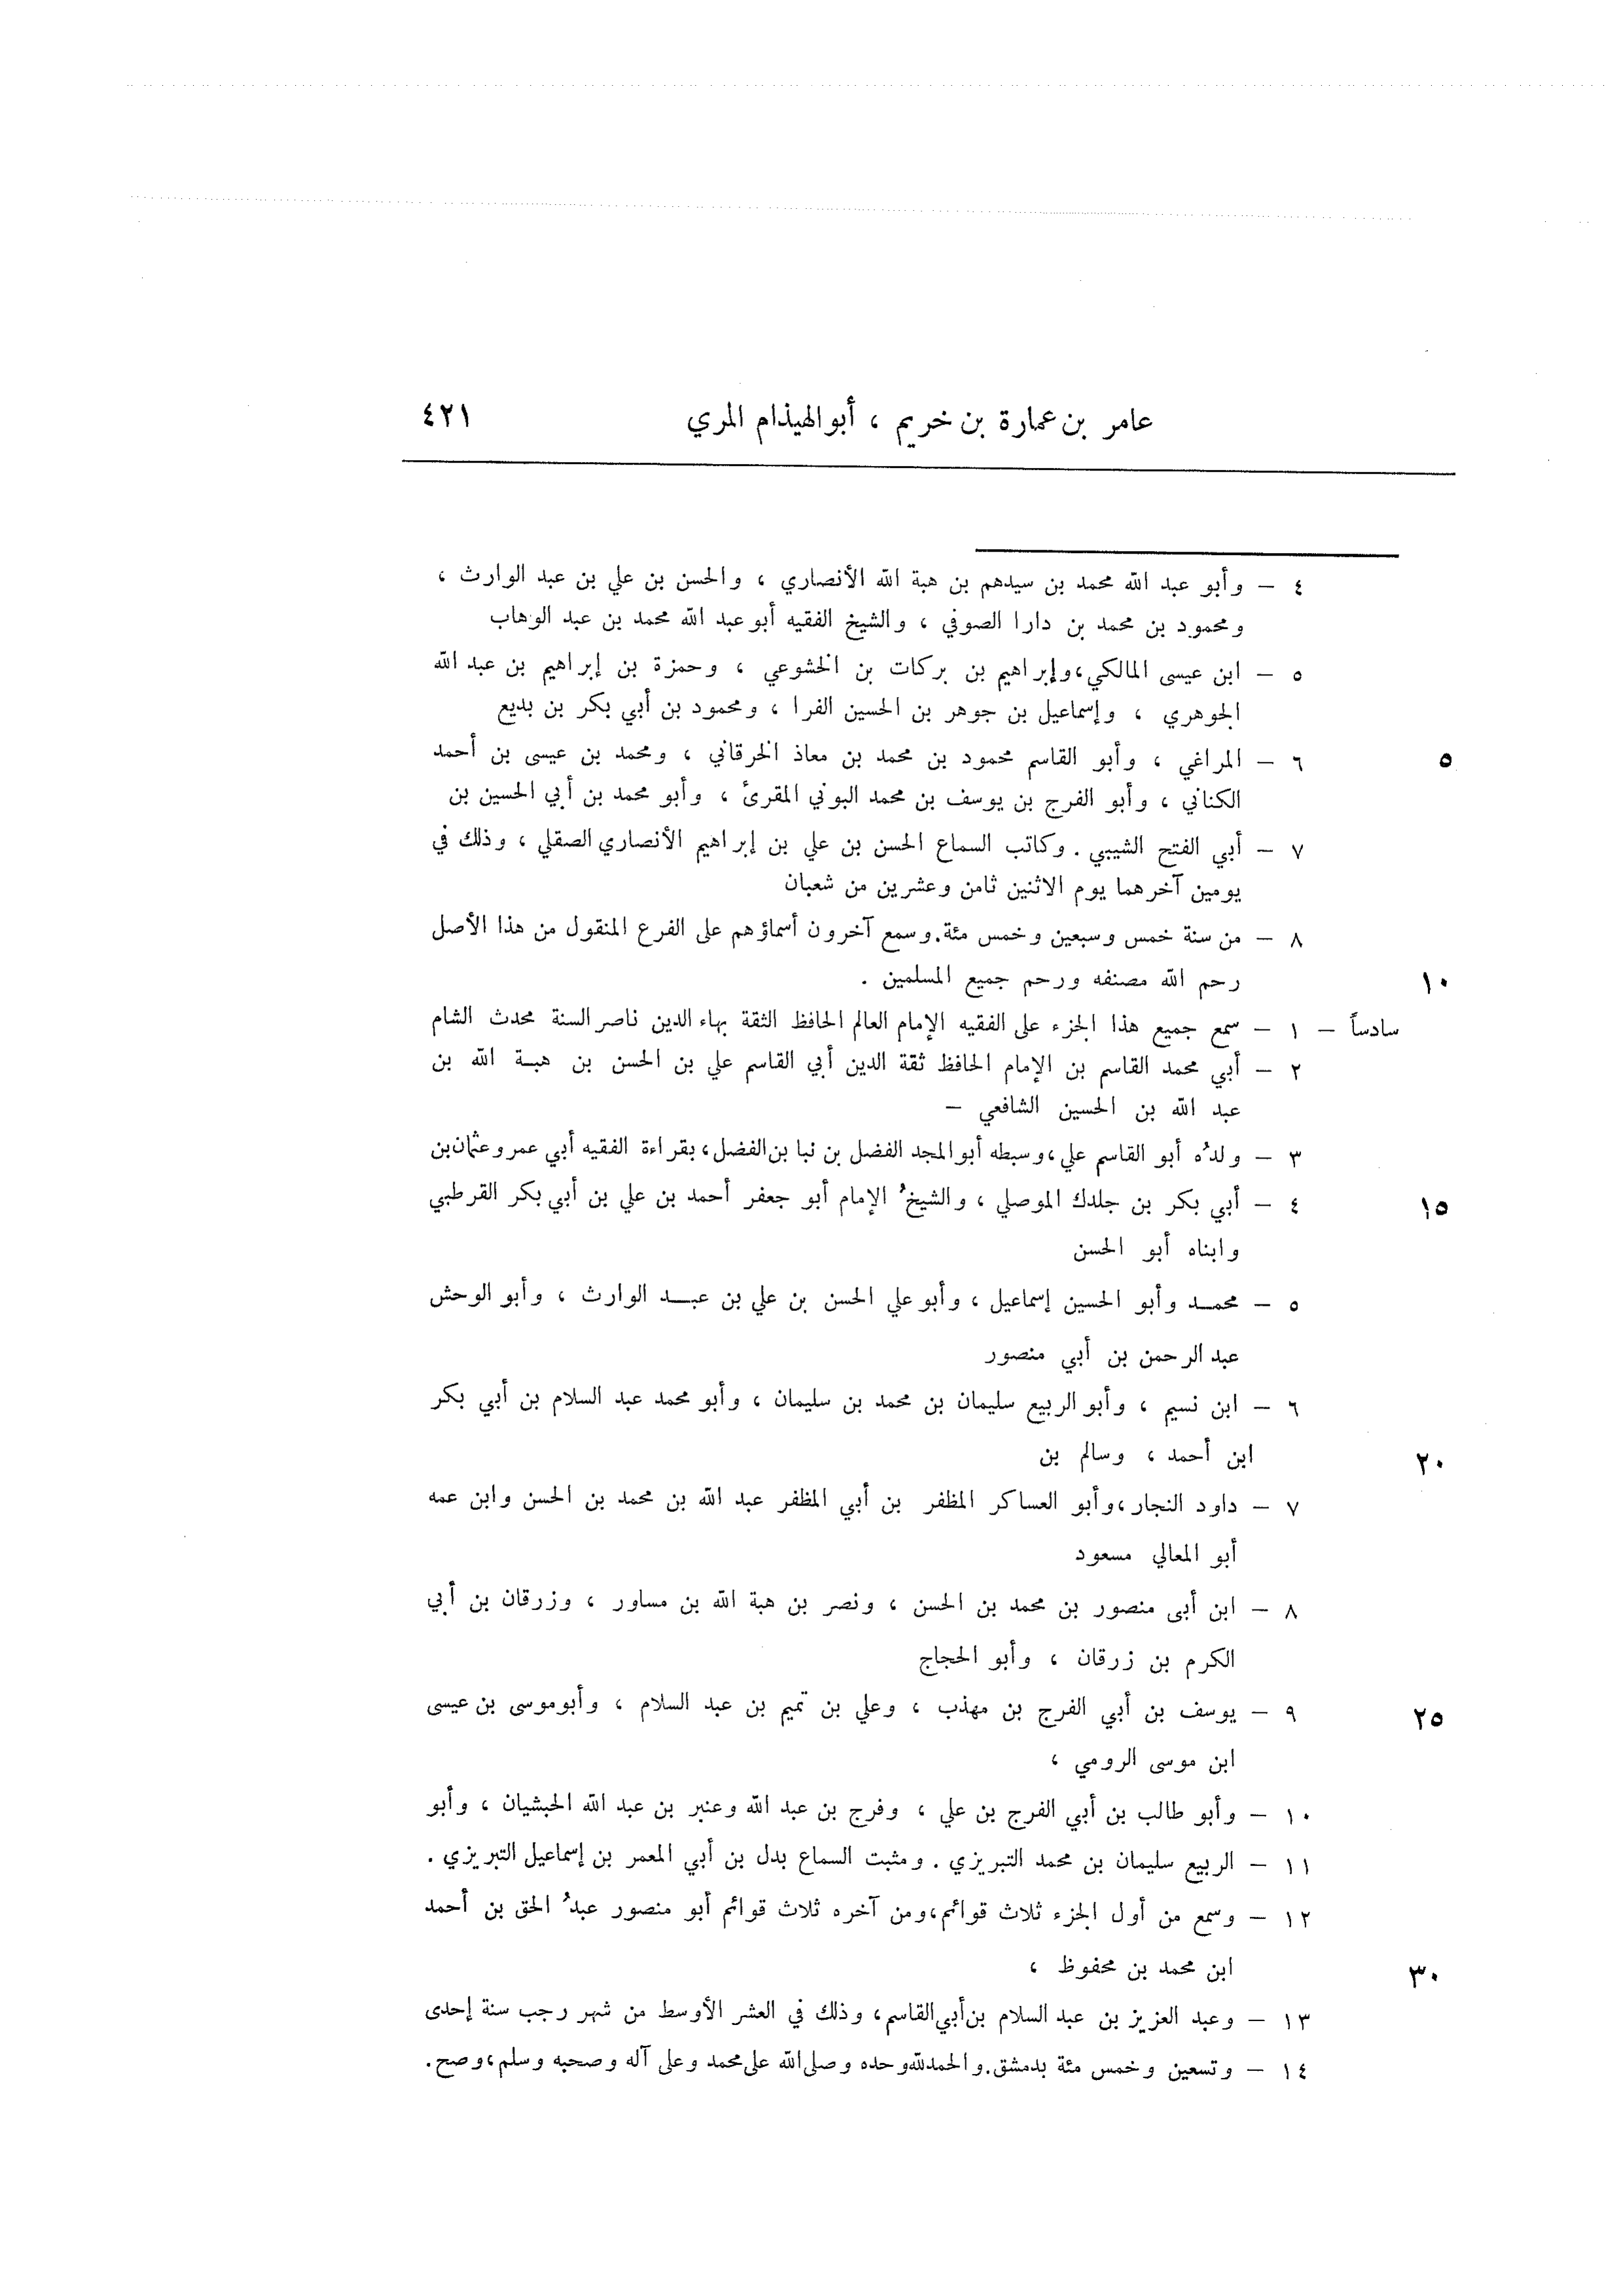 عامر بن عمارة بن خريم ، أبو الهيذام المري ٤٢١
٤ – وأبو عبد الله محمد بن سيدهم بن هبة الله الأنصاري ، والحسن بن علي بن عبد الوارث ،
ومحمود بن محمد بن دارا الصوفي ، والشيخ الفقيه أبو عبد الله محمد بن عبد الوهاب
٥ – ابن عيسى المالكي ، وإبراهيم بن بركات بن الخشوعي ، وحمزة بن إبراهيم بن عبد الله
الجوهري ، وإسماعيل بن جوهر بن الحسين الفرا ، ومحمود بن أبي بكر بن بديع
٥ ٦ – المراغي ، وأبو القاسم محمود بن محمد بن معاذ الخرقاني ، ومحمد بن عيسى بن أحمد
الكناني ، وأبو الفرج بن يوسف بن محمد البوني المقرئ ، وأبو محمد بن أبي الحسين بن
٧ – أبي الفتح الشيبي . وكاتب السماع الحسن بن علي بن إبراهيم الأنصاري الصقلي ، وذلك في
يومين آخرهما يوم الاثنين ثامن وعشرين من شعبان
٨ – من سنة خمس وسبعين وخمس مئة. وسمع آخرون أسماؤهم على الفرع المنقول من هذا الأصل
١٠ رحم الله مصنفه ورحم جميع المسلمين .
سادساً – ١ – سمع جميع هذا الجزء على الفقيه الإمام العالم الحافظ الثقة بهاء الدين ناصر السنة محدث الشام
٢ – أبي محمد القاسم بن الإمام الحافظ ثقة الدين أبي القاسم علي بن الحسن بن هبـة الله بن
عبد الله بن الحسين الشافعي –
٣ – ولدُه أبو القاسم علي ، وسبطه أبو المجد الفضل بن نبا بن الفضل ، بقراءة الفقيه أبي عمرو عثمان بن
١٥ ٤ – أبي بكر بن جلدك الموصلي ، والشيخُ الإمام أبو جعفر أحمد بن علي بن أبي بكر القرطبي
وابناه أبو الحسن
٥ – محمـد وأبو الحسين إسماعيل ، وأبو علي الحسن بن علي بن عبـد الوارث ، وأبو الوحش
عبد الرحمن بن أبي منصور
٦ – ابن نسيم ، وأبو الربيع سليمان بن محمد بن سليمان ، وأبو محمد عبد السلام بن أبي بكر
٢٠ ابن أحمد ، وسالم بن
٧ – داود النجار ، وأبو العساكر المظفر بن أبي المظفر عبد الله بن محمد بن الحسن وابن عمه
أبو المعالي مسعود
٨ – ابن أبى منصور بن محمد بن الحسن ، ونصر بن هبة الله بن مساور ، وزرقان بن أبي
الكرم بن زرقان ، وأبو الحجاج
٢٥ ٩ – يوسف بن أبي الفرج بن مهذب ، وعلي بن تميم بن عبد السلام ، وأبو موسى بن عيسى
ابن موسى الرومي ،
١٠ – وأبو طالب بن أبي الفرج بن علي ، وفرج بن عبد الله وعنبر بن عبد الله الحبشيان ، وأبو
١١ – الربيع سليمان بن محمد التبريزي . ومثبت السماع بدل بن أبي المعمر بن إسماعيل التبريزي .
١٢ – وسمع من أول الجزء ثلاث قوائم ، ومن آخره ثلاث قوائم أبو منصور عبدُ الحق بن أحمد
٣٠ ابن محمد بن محفوظ ،
١٣ – وعبد العزيز بن عبد السلام بن أبي القاسم ، وذلك في العشر الأوسط من شهر رجب سنة إحدى
١٤ – وتسعين وخمس مئة بدمشق. والحمد لله وحده وصلى الله على محمد وعلى آله وصحبه وسلم ، وصح.